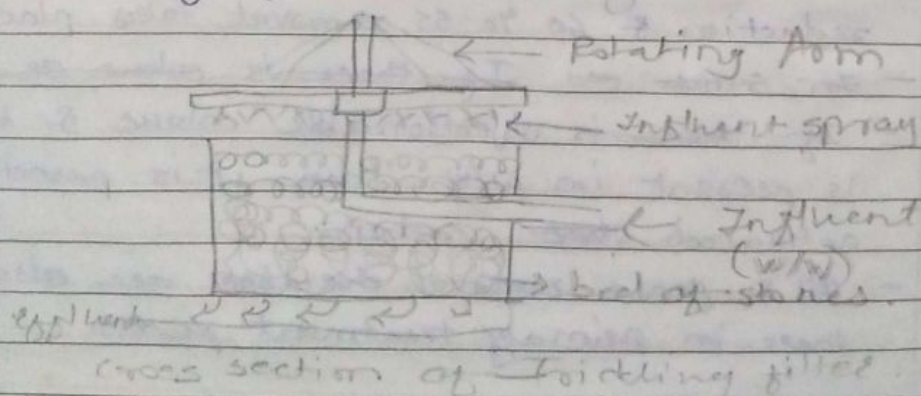 Rotating Arm
Influent spray
Influent
(w/w)
bed of stones.
effluent
Cross section of Trickling filter.